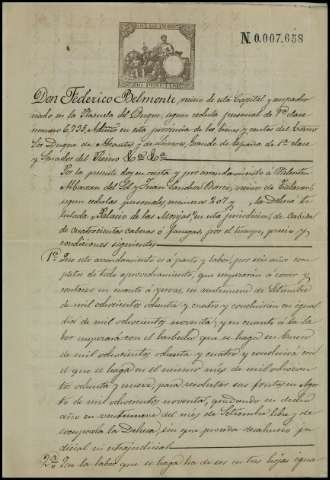 N.0.007,658
Don Federico Belmonte, vecino de esta Capital y empadro-
nado en la Plazuela del Duque, segun cedula personal de 9ª clase
numero 6,735, Admor en esta provincia de los bienes y rentas del Excmo
Sor Duque de Abrantes y de Linares, Grande de España de 1ª clase
y Senador del Reino &ª &ª
Por la presente doy en renta y por arrendamiento á
y Juan Sanchez vecinos de
segun cedulas personales, numeros 207 y , la Dehesa ti-
tulada Palacio de las Monjas en esta provincia, de cabida
de cuatrocientas cabezas ó fanegas, por el tiempo, precio y
condiciones siguientes
1ª Que este arrendamiento es á pasto y labor, por seis años com-
pletos de todo aprovechamiento, que empezarán á correr y
contarse en cuanto á yervas, en veintinueve de Setiembre
de mil ochocientos ochenta y cuatro y concluirán en igual
dia de mil ochocientos noventa; y en cuanto á la la-
bor empezará con el barbecho que se haga en Enero
de mil ochocientos ochenta y cuatro y concluirá con
el que se haga en el mismo mes de mil ochocien
tos ochenta y nueve, para recolectar sus frutos en Agos-
to de mil ochocientos noventa, quedando en dicho
año en veintinueve del mes de Setiembre libre y de-
socupada la Dehesa, sin que preceda desahucio ju-
dicial ni extrajudicial
2ª Que la labor que se haga ha de ser en tres hojas igua-